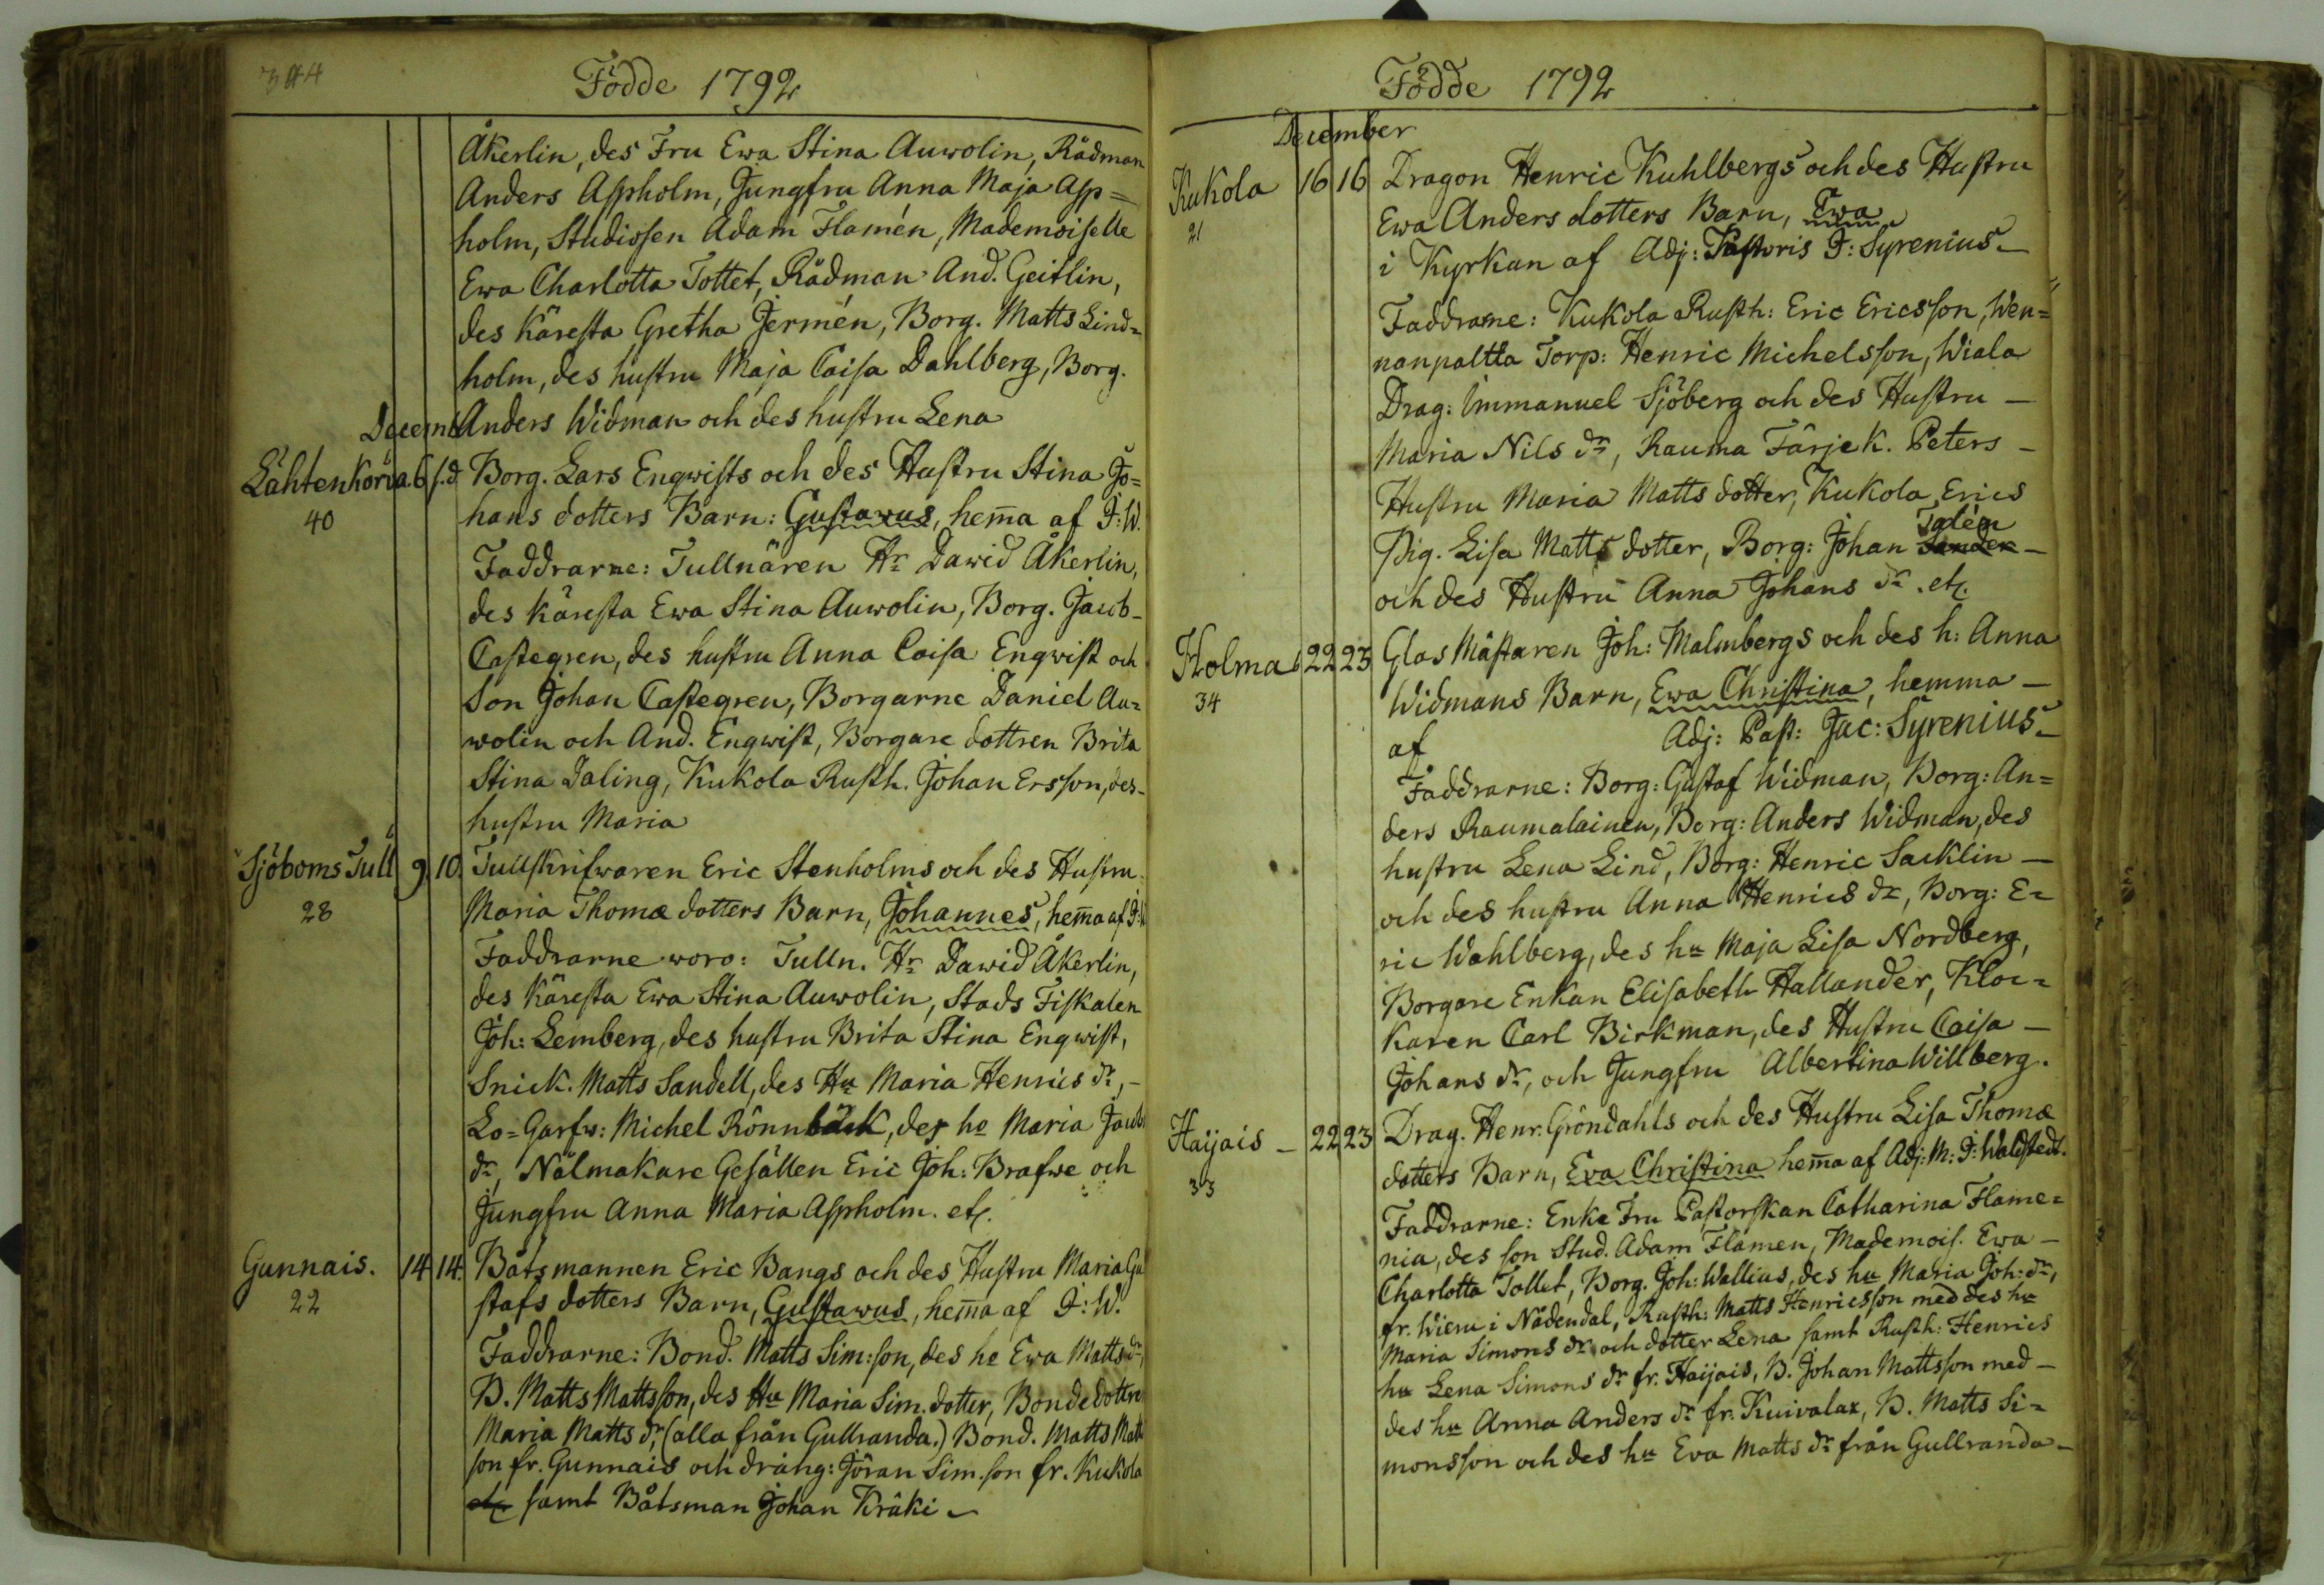 344
Födde 1792
Åkerlin, des Fru Ewa Stina Auwolin, Rådman
Anders Aspholm, Jungfru Anna Maja Asp=
holm, Studiosen Adam Flamén, Mademoiselle
Ewa Charlotta Tottet, Rådman And. Geitlin,
des Käresta Gretha Jermén, Borg. Matts Lind=
holm, des hustru Maja Caisa Dahlberg, Borg.
Anders Widman och des hustru Lena
Decemb
Lähtenkorfwa. 6 s.d. Borg. Lars Engwists och des Hustru Stina Jo=
40 hans dotters Barn: Gustavus, hem̄a af J: W.
Faddrarne: Tullnären Hr Dawid Åkerlin,
des Käresta Ewa Stina Auwolin, Borg. Jacob-
Castegren, des hustru Anna Caisa Engwist och
Son Johan Castegren, Borgarne Daniel Au=
wolin och And. Engwist, Borgare dottren Brita
Stina Daling, Kukola Rusth. Johan Ersson, des-
hustru Maria
Sjöboms Tull 9. 10. Tullskrifwaren Eric Stenholms och des Hustru
28 Maria Thomæ dotters Barn, Johannes, hem̄a af J: W
Faddrarne woro: Tulln. Hr Dawid Åkerlin,
des Käresta Ewa Stina Auwolin, Stads Fiskalen
Joh: Lemberg, des hustru Brita Stina Engwist,
Snick. Matts Sandell, des Hu Maria Henrics dr,-
Lo=Garfw: Michel Rönnbäck, des hu Maria Jacobs
dr, Nålmakare Gesällen Eric Joh: Brafwe och
Jungfru Anna Maria Aspholm. etc.
Gunnais. 14 14. Båtsmannen Eric Bangs och des Hustru Maria Gu
22 stafs dotters Barn, Gustawus, hem̄a af J: W.
Faddrarne: Bond. Matts Sim:son, des hu Ewa Matts dr,
B. Matts Mattsson, des Hu Maria Sim. dotter, Bondedottre
Maria Matts dr, (alla från Gullranda.) Bond. Matts Matts
son fr. Gunnais och dräng: Jöran Sim.son fr. Kukola
etc samt Båtsman Johan Kräki -
Födde 1792
December
Kukola 16 16 Dragon Henric Kuhlbergs och des Hustru
21 Ewa Anders dotters Barn, Ewa
i Kyrkan af Adj: Pastoris J: Syrenius -
Faddrarne: Kukola Rusth: Eric Ericsson, Wen=
nanpaltta Torp: Henric Michelsson, Wiala
Drag: Immanuel Sjöberg och des Hustru -
Maria Nils dr, Rauma Färjek. Peters -
Hustru Maria Matts dotter, Kukola Erics
Pig. Lisa Matts dotter, Borg: Johan Sanden Talén -
och des Hustru Anna Johans dr. etc.
Holma 22 23 Glas Mästaren Joh: Malmbergs och des h: Anna
34 Widmans Barn, Ewa Christina, hemma -
af Adj: Past: Jac: Syrenius -
Faddrarne: Borg: Gustaf Widman, Borg: An=
ders Raumalainen, Borg: Anders Widman, des
hustru Lena Lind, Borg: Henric Sacklin -
och des hustru Anna Henrics dr, Borg: E=
ric Wahlberg, des hu Maja Lisa Nordberg,
Borgare Enkan Elisabeth Hallander, Kloc=
karen Carl Birkman, des Hustru Caisa -
Johans dr, och Jungfru Albertina Willberg.
Haijais - 22 23 Drag. Henr. Gröndahls och des Hustru Lisa Thomæ
33 dotters Barn, Eva Christina hem̄a af Adj: M: J: Waldstedt.
Faddrarne: Enke Fru Pastorskan Catharina Flame=
nia, des son Stud. Adam Flamen, Mademois. Ewa -
Charlotta Tollet, Borg. Joh: Wallius, des hu Maria Joh: dr,
fr. Wieru i Nådendal, Rusth: Matts Henricsson med des hu
Maria Simons dr och dotter Lena samt Rusth: Henrics
hu Lena Simons dr fr. Haijais, B. Johan Mattsson med -
des hu Anna Anders dr fr. Kuivalax, B. Matts Si=
monsson och des hu Eva Matts dr från Gullranda -